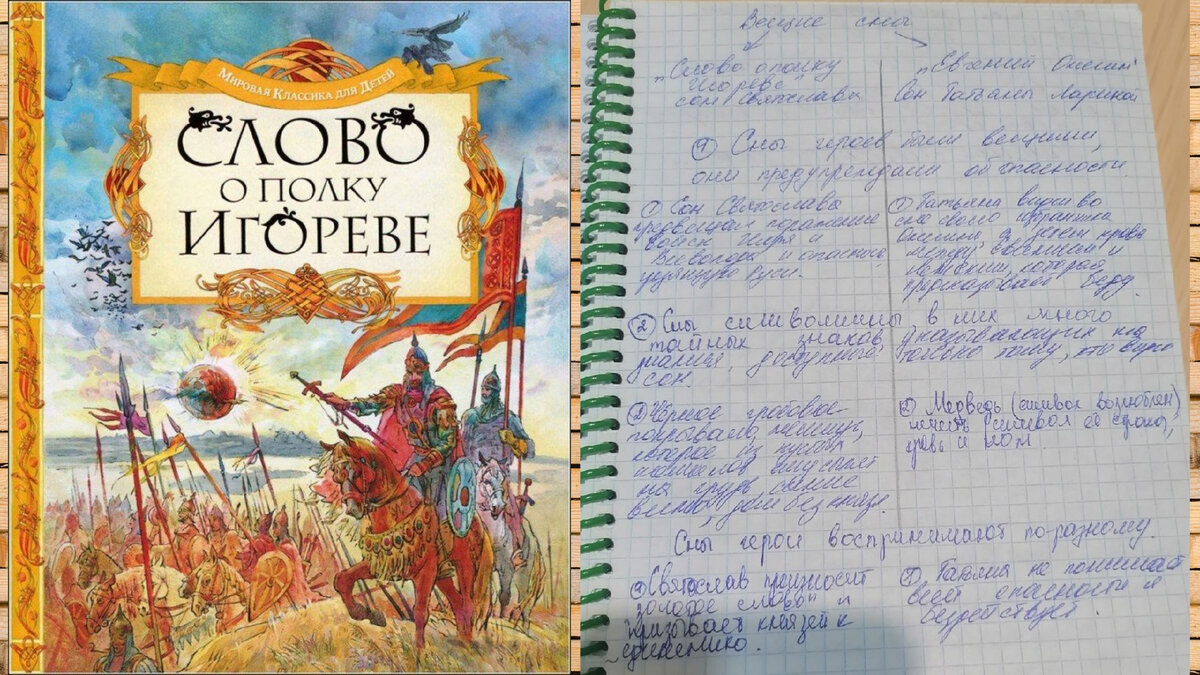 Мировая Классика для Детей
СЛОВО
О ПОЛКУ
ИГОРЕВЕ
Вещие сны
"Слово о полку
Игореве"
сон Святослава
"Евгений Онегин"
Сон Татьяны Лариной
① Сны героев были вещими,
они предупреждали об опасности.
① Сон Святослава
поражение
войск Игоря и
Всеволода и опасность,
Руси.
① Татьяна видит во
сне своего избранника
Онегина и
между Евгением и
Ленским, которая
предсказывает беду.
② Сны символичны в них много
тайных знаков, указывающих на
доступный только тому, кто видит
сон.
② Чёрное гробовое
покрывало, жемчуг,
который из пустых
колчанов
на грудь, синее
вино, дом без князя.
② Медведь (символ возлюблен),
символ её
кровь и нож.
Сны герои воспринимают по-разному.
Святослав произносит
"золотое слово" и
призывает князей к
единению.
Татьяна не понимает
всей опасности и
бездействует.